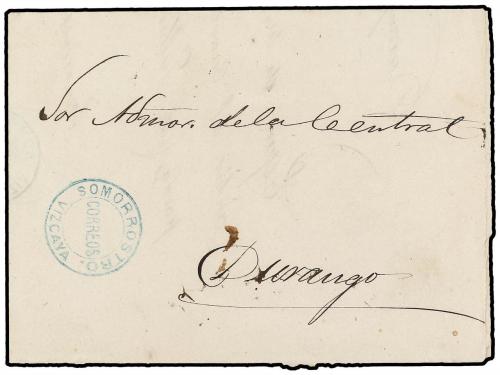 Sor Admor. de la Central
SOMORROSTRO.
CORREOS.
VIZCAYA
Durango